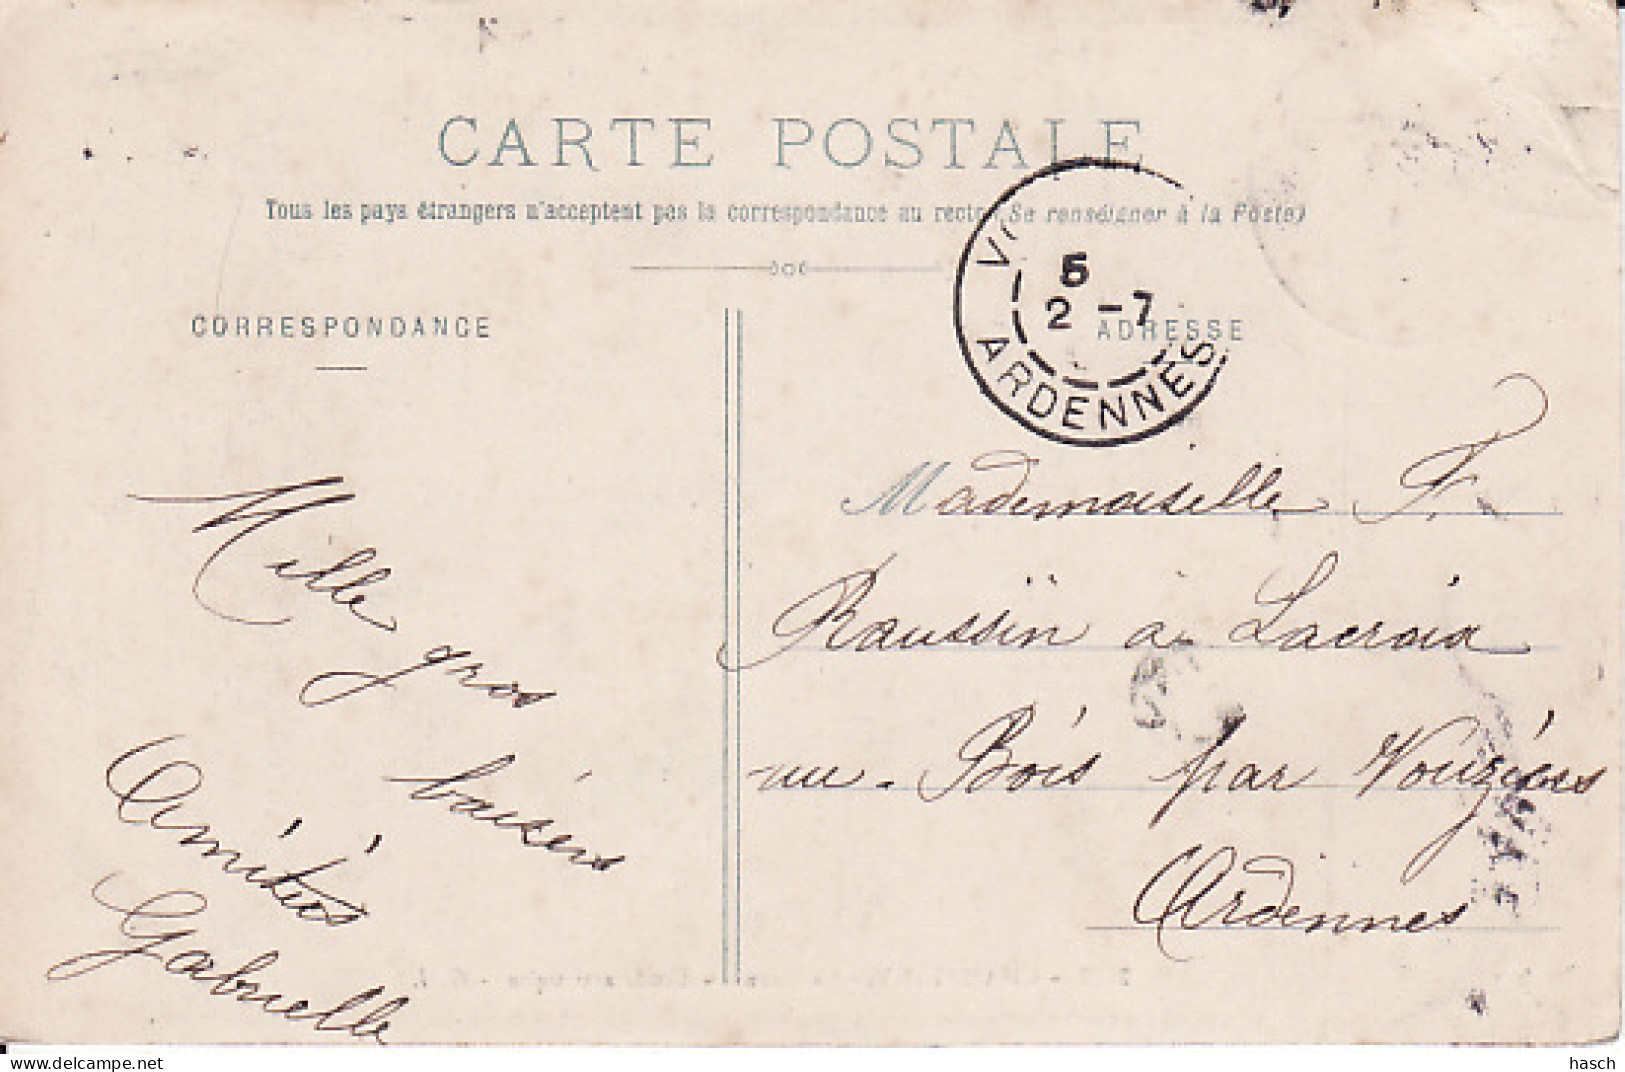 CARTE POSTALE
Tous les pays étrangers n'acceptent pas la correspondance au recto (Se renseigner à la Poste)
5
2 -7
ARDENNES
CORRESPONDANCE
ADRESSE
Mille
gros
baisers
Amitiés
Gabrielle
Mademoiselle F.
Raussin à Lacroix
au-Bois par Vouziers
Ardennes
hasch